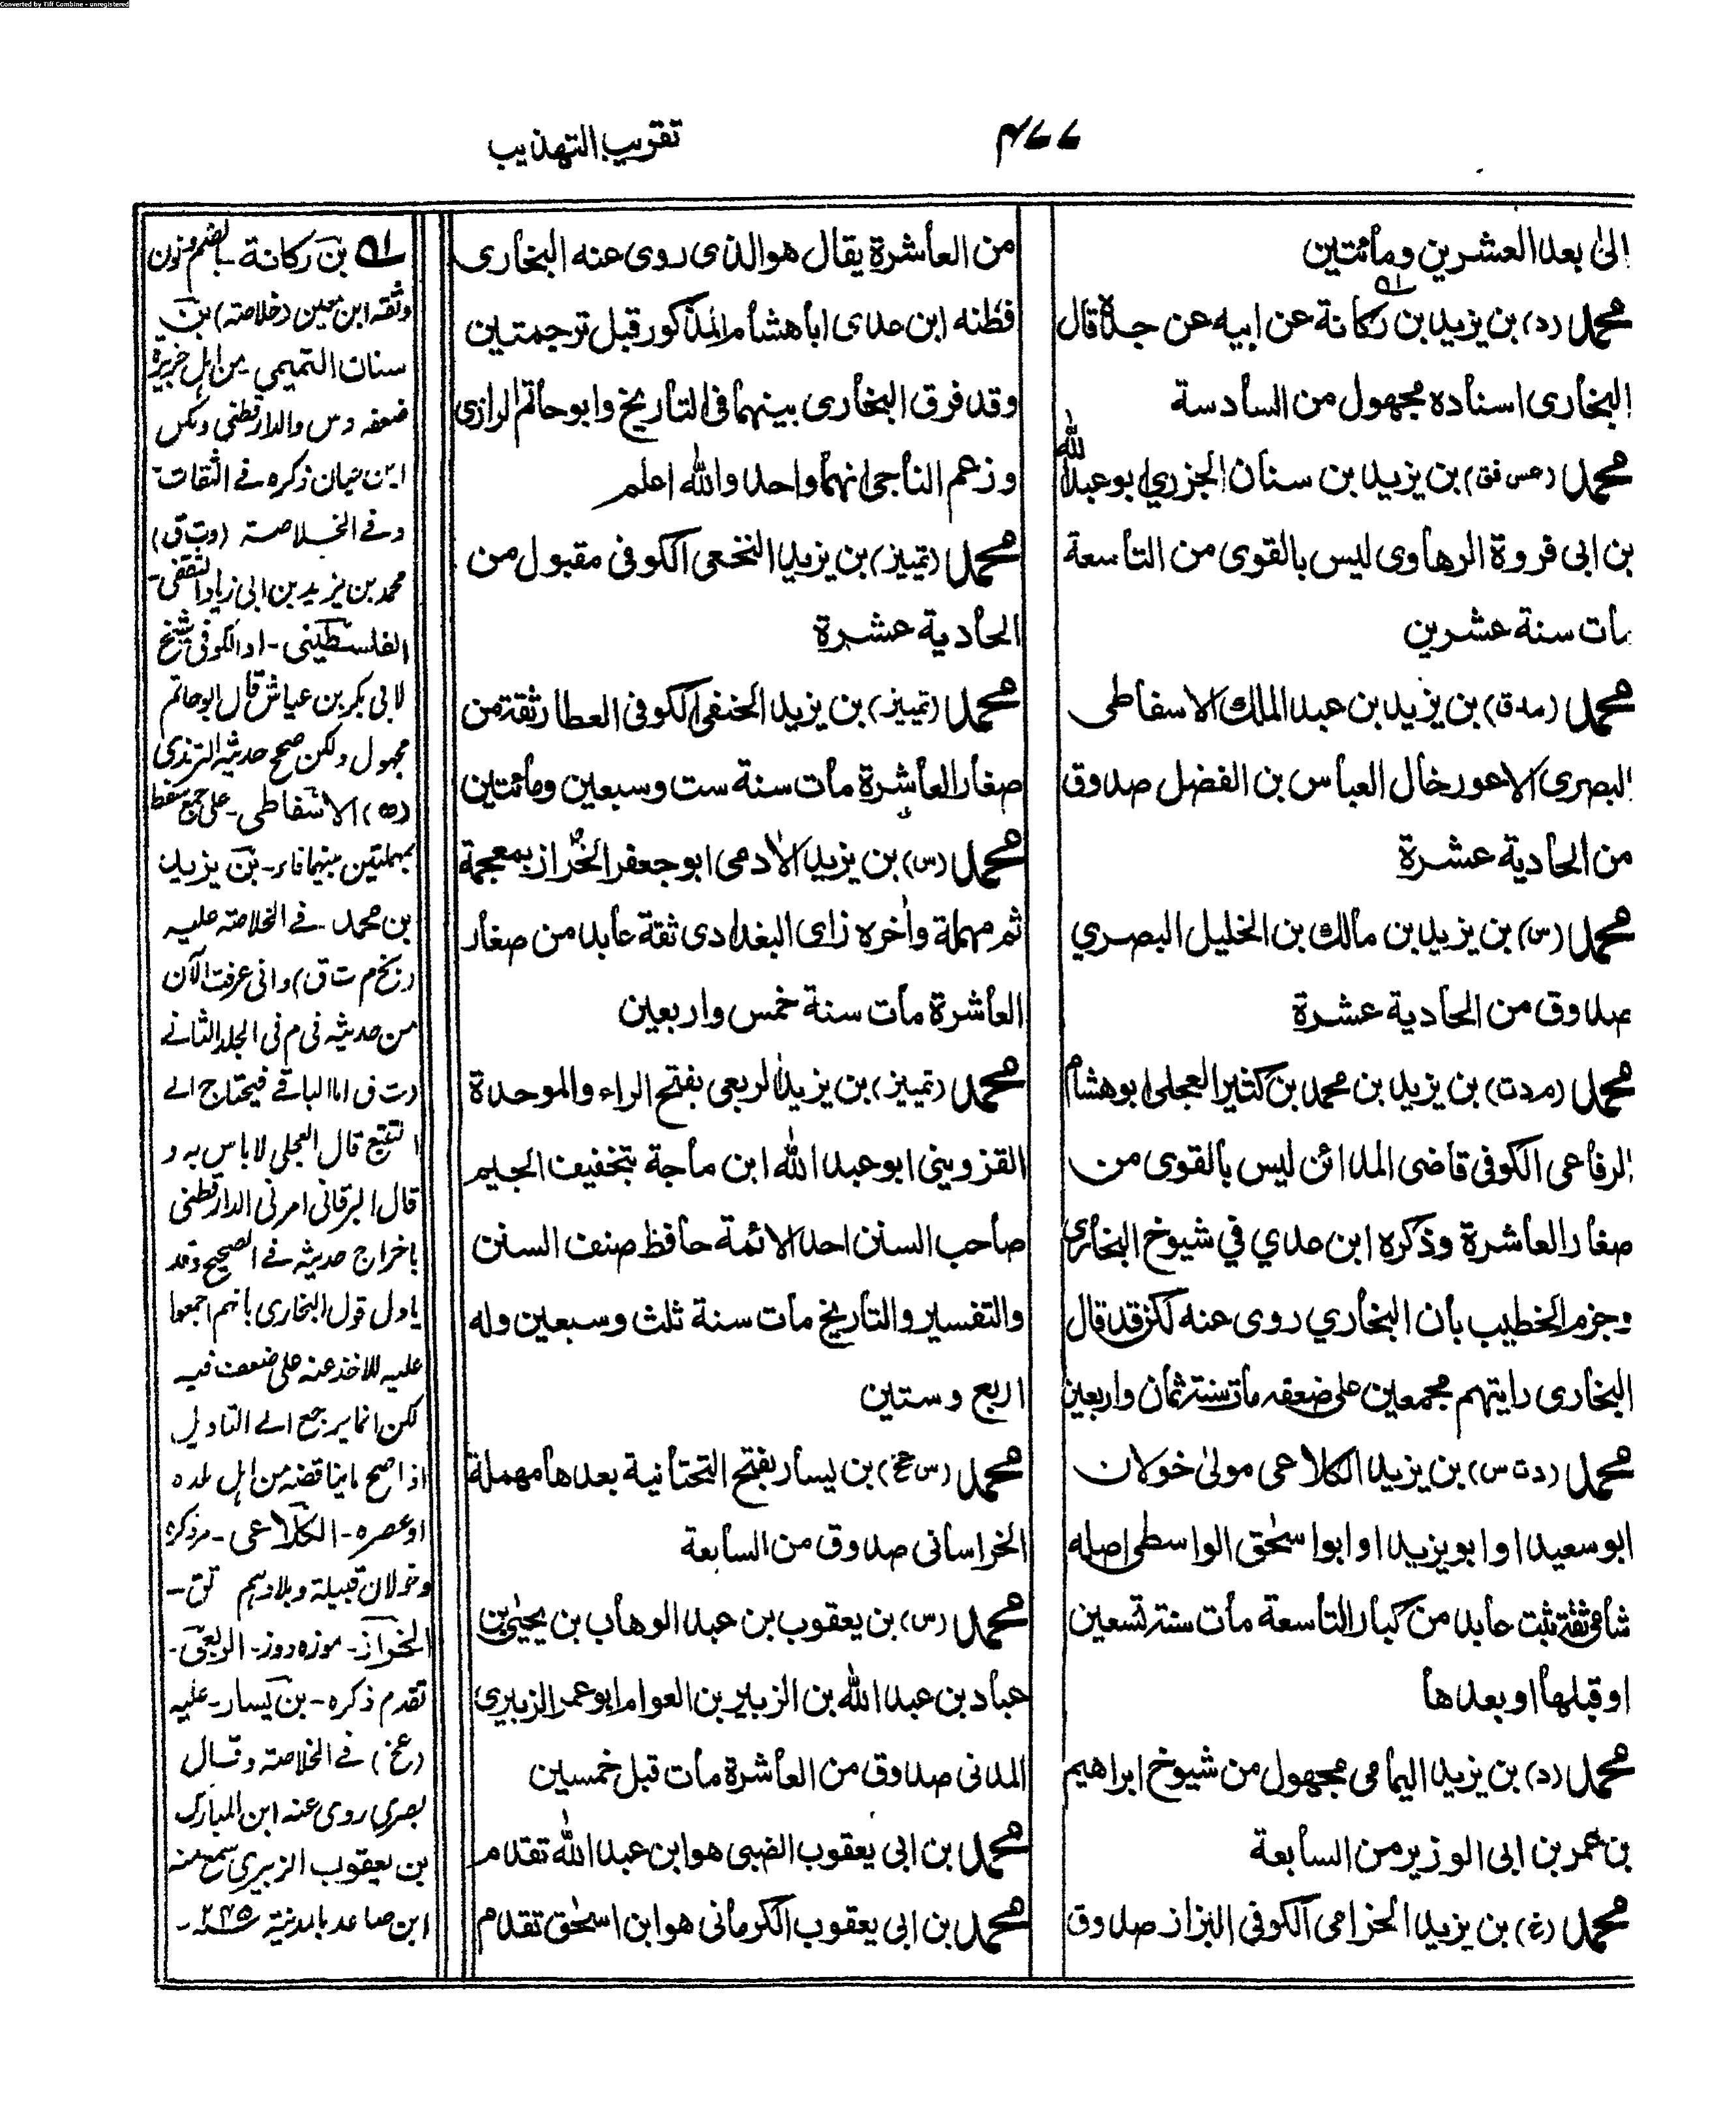 Converted by Tiff Combine - unregistered
٤٧٧
تقريب التهذيب
الىٰ بعد العشرين ومأئتين
محمد (د) بن يزيد بن ركانة عن ابيه عن جدة قال
البخارى اسناده مجهول من السادسة
محمد (عس فق) بن يزيد بن سنان الجزري ابو عبد الله
بن ابى فروة الرهاوى ليس بالقوى من التاسعة
مات سنة عشرين
محمد (مد ق) بن يزيد بن عبد الملك الاسفاطى
البصرى الاعور خال العباس بن الفضل صدوق
من الحادية عشرة
محمد (س) بن يزيد بن مالك بن الخليل البصري
صدوق من الحادية عشرة
محمد (م د ت) بن يزيد بن محمد بن كثير العجلى ابو هشام
الرفاعى الكوفى قاضى المدائن ليس بالقوى من
صغار العاشرة وذكره ابن عدي في شيوخ البخاري
وجزم الخطيب بأن البخاري روى عنه لكن قد قال
البخارى رايتهم مجمعين على ضعفه مات سنة ثمان واربعين
محمد (د ت س) بن يزيد الكلاعى مولىٰ خولان
ابو سعيد او ابو يزيد او ابو اسحٰق الواسطى اصله
شامى ثقة ثبت عابد من كبار التاسعة مات سنة تسعين
او قبلها او بعدها
محمد (د) بن يزيد اليمامى مجهول من شيوخ ابراهيم
بن عمر بن ابى الوزير من السابعة
محمد (خ) بن يزيد الحزامى الكوفى البزاز صدوق
من العاشرة يقال هو الذى روى عنه البخارى
فظنه ابن عدى ابا هشام المذكور قبل ترجمتين
وقد فرق البخارى بينهما فى التأريخ وابو حاتم الرازى
وزعم الناجى انهما واحد والله اعلم
محمد (تمييز) بن يزيد النخعى الكوفى مقبول من
الحادية عشرة
محمد (تمييز) بن يزيد الحنفى الكوفى العطار ثقة من
صغار العاشرة مات سنة ست وسبعين ومائتين
محمد (س) بن يزيد الادمى ابو جعفر الخراز بمعجمة
ثم مهملة وأخره زاى البغدادى ثقة عابد من صغار
العاشرة مات سنة خمس واربعين
محمد (تمييز) بن يزيد الربعى بفتح الراء والموحدة
القزوينى ابو عبد الله ابن ماجة بتخفيف الجيم
صاحب السنن احد الائمة حافظ صنف السنن
والتفسير والتأريخ مات سنة ثلث وسبعين وله
اربع وستين
محمد (س عخ) بن يسار بفتح التحتانية بعدها مهملة
الخراسانى صدوق من السابعة
محمد (س) بن يعقوب بن عبد الوهاب بن يحيىٰ بن
عباد بن عبد الله بن الزبير بن العوام ابو عمر الزبيرى
المدنى صدوق من العاشرة مات قبل خمسين
محمد بن ابى يعقوب الضبى هو ابن عبد الله تقدم
محمد بن ابى يعقوب الكرمانى هو ابن اسحٰق تقدم
بن ركانة - بالضم ونون
وثقه ابن معين (خلاصة) بن
سنان التميمى من اهل جزيرة
ضعفه د س والدارقطنى ولكن
ابن حبان ذكره فى الثقات
وفى الخلاصة (د ت ق)
محمد بن يزيد بن ابى زياد الثقفى -
الفلسطينى - او الكوفى شيخ
لابى بكر بن عياش قال ابو حاتم
مجهول ولكن صحح حديثه الترمذى
(ه) الاسفاطى - على جمع سفط
بمهملتين بينهما فاء - بن يزيد
بن محمد - فى الخلاصة عليه
م ت ق) وانى عرفت الآن
من حديثه فى م فى المجلد الثانى
د ت ق اما الباقى فيحتاج الى
التتبع قال العجلى لا باس به و
قال البرقانى امرنى الدارقطنى
باخراج حديثه فى الصحيح وقد
ياول قول البخارى بانهم اجمعوا
عليه للاخذ عنه على ضعف فيه
لكن انما يرجع الى التاويل
اذا صح ما يناقضه من اهل بلده
او عصره - الكلاعى - مر ذكره
وخولان قبيلة وبلادهم
الخراز - موزه دوز - الربعى -
تقدم ذكره - بن يسار - عليه
(عخ) فى الخلاصة وقال
بصرى روى عنه ابن المبارك
بن يعقوب الزبيرى سمع منه
ابن صاعد بالمدينة سنة ٢٤٥ -